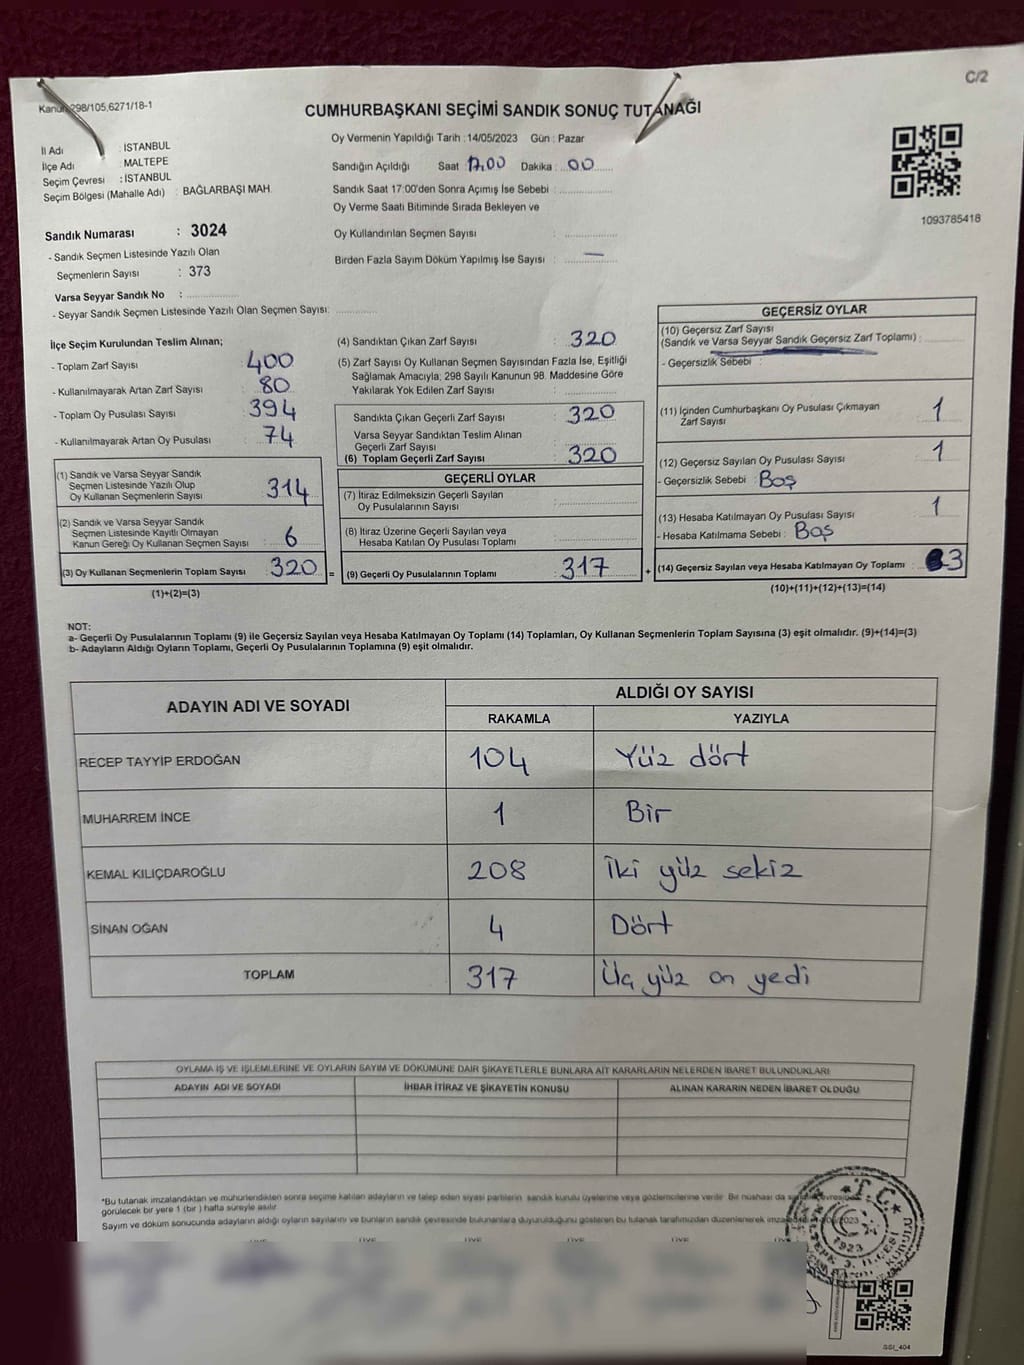 C/2
Kanun 298/105,6271/18-1
CUMHURBAŞKANI SEÇİMİ SANDIK SONUÇ TUTANAĞI
İl Adı : İSTANBUL
İlçe Adı : MALTEPE
Seçim Çevresi : İSTANBUL
Seçim Bölgesi (Mahalle Adı) : BAĞLARBAŞI MAH.
Oy Vermenin Yapıldığı Tarih : 14/05/2023 Gün : Pazar
Sandığın Açıldığı Saat 17.00 Dakika : 00
Sandık Saat 17:00'den Sonra Açımış İse Sebebi :
Oy Verme Saati Bitiminde Sırada Bekleyen ve
Oy Kullandırılan Seçmen Sayısı :
Birden Fazla Sayım Döküm Yapılmış İse Sayısı : —
1093785418
Sandık Numarası : 3024
- Sandık Seçmen Listesinde Yazılı Olan
Seçmenlerin Sayısı : 373
Varsa Seyyar Sandık No :
- Seyyar Sandık Seçmen Listesinde Yazılı Olan Seçmen Sayısı:
İlçe Seçim Kurulundan Teslim Alınan;
- Toplam Zarf Sayısı : 400
- Kullanılmayarak Artan Zarf Sayısı : 80
- Toplam Oy Pusulası Sayısı : 394
- Kullanılmayarak Artan Oy Pusulası : 74
(1) Sandık ve Varsa Seyyar Sandık
Seçmen Listesinde Yazılı Olup
Oy Kullanan Seçmenlerin Sayısı : 314
(2) Sandık ve Varsa Seyyar Sandık
Seçmen Listesinde Kayıtlı Olmayan
Kanun Gereği Oy Kullanan Seçmen Sayısı : 6
(3) Oy Kullanan Seçmenlerin Toplam Sayısı : 320 =
(1)+(2)=(3)
(4) Sandıktan Çıkan Zarf Sayısı : 320
(5) Zarf Sayısı Oy Kullanan Seçmen Sayısından Fazla İse, Eşitliği
Sağlamak Amacıyla; 298 Sayılı Kanunun 98. Maddesine Göre
Yakılarak Yok Edilen Zarf Sayısı :
Sandıkta Çıkan Geçerli Zarf Sayısı : 320
Varsa Seyyar Sandıktan Teslim Alınan
Geçerli Zarf Sayısı :
(6) Toplam Geçerli Zarf Sayısı : 320
GEÇERLİ OYLAR
(7) İtiraz Edilmeksizin Geçerli Sayılan
Oy Pusulalarının Sayısı :
(8) İtiraz Üzerine Geçerli Sayılan veya
Hesaba Katılan Oy Pusulası Toplamı :
(9) Geçerli Oy Pusulalarının Toplamı : 317 +
GEÇERSİZ OYLAR
(10) Geçersiz Zarf Sayısı
(Sandık ve Varsa Seyyar Sandık Geçersiz Zarf Toplamı) :
- Geçersizlik Sebebi :
(11) İçinden Cumhurbaşkanı Oy Pusulası Çıkmayan
Zarf Sayısı : 1
(12) Geçersiz Sayılan Oy Pusulası Sayısı : 1
- Geçersizlik Sebebi : Boş
(13) Hesaba Katılmayan Oy Pusulası Sayısı : 1
- Hesaba Katılmama Sebebi : Boş
(14) Geçersiz Sayılan veya Hesaba Katılmayan Oy Toplamı : 3
(10)+(11)+(12)+(13)=(14)
NOT:
a- Geçerli Oy Pusulalarının Toplamı (9) ile Geçersiz Sayılan veya Hesaba Katılmayan Oy Toplamı (14) Toplamları, Oy Kullanan Seçmenlerin Toplam Sayısına (3) eşit olmalıdır. (9)+(14)=(3)
b- Adayların Aldığı Oyların Toplamı, Geçerli Oy Pusulalarının Toplamına (9) eşit olmalıdır.
ADAYIN ADI VE SOYADI ALDIĞI OY SAYISI
RAKAMLA YAZIYLA
RECEP TAYYİP ERDOĞAN 104 Yüz dört
MUHARREM İNCE 1 Bir
KEMAL KILIÇDAROĞLU 208 İki yüz sekiz
SİNAN OĞAN 4 Dört
TOPLAM 317 Üç yüz on yedi
OYLAMA İŞ VE İŞLEMLERİNE VE OYLARIN SAYIM VE DÖKÜMÜNE DAİR ŞİKAYETLERLE BUNLARA AİT KARARLARIN NELERDEN İBARET BULUNDUKLARI
ADAYIN ADI VE SOYADI İHBAR İTİRAZ VE ŞİKAYETİN KONUSU ALINAN KARARIN NEDEN İBARET OLDUĞU
*Bu tutanak imzalandıktan ve mühürlendikten sonra seçime katılan adayların ve talep eden siyasi partilerin sandık kurulu üyelerine veya gözlemcilerine verilir. Bir nüshası da
görülecek bir yere 1 (bir ) hafta süreyle asılır.
Sayım ve döküm sonucunda adayların aldığı oyların sayılarını ve bunların sandık çevresinde bulunanlara duyurulduğunu gösteren bu tutanak tarafımızdan düzenlenerek
T.C.
1923
SSI_404